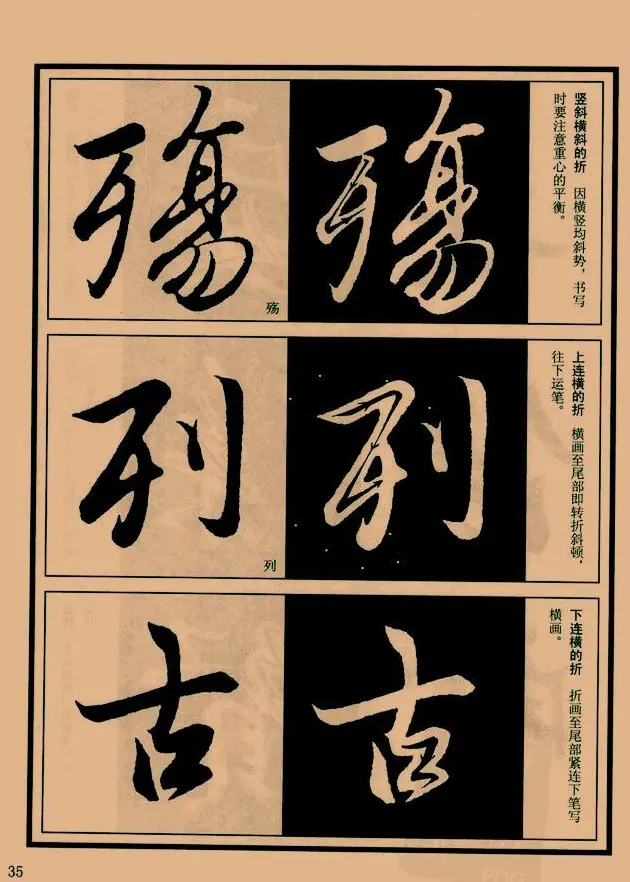 竖斜横斜的折 因横竖均斜势，书写
时要注意重心的平衡。
殇
殇
殇
上连横的折 横画至尾部即转折斜顿，
往下运笔。
列
列
列
下连横的折 折画至尾部紧连下笔写
横画。
古
古
35
PDG